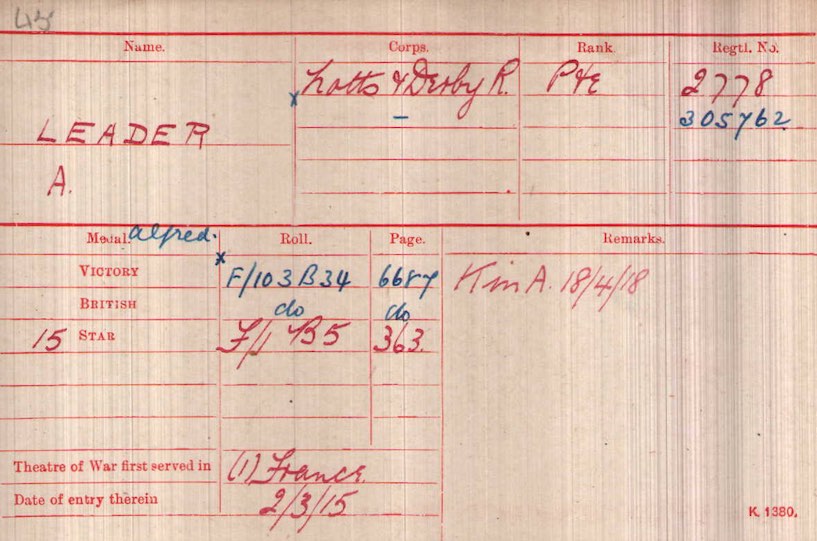 Name. Corps. Rank Regtl. No.
x Notts & Derby R. Pte 2778
— 305762
LEADER
A.
Medal. alfred. Roll. Page. Remarks.
x
VICTORY F/103B34 6687 K in A. 18/4/18
BRITISH do do
15 STAR F/1 B5 363.
Theatre of War first served in (1) France.
Date of entry therein 2/3/15
K. 1380.